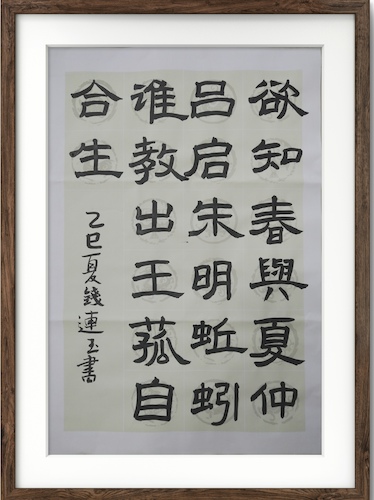 欲知春與夏仲
吕启朱明蚯蚓
谁教出王菰自
合生
乙巳夏錢連玉書